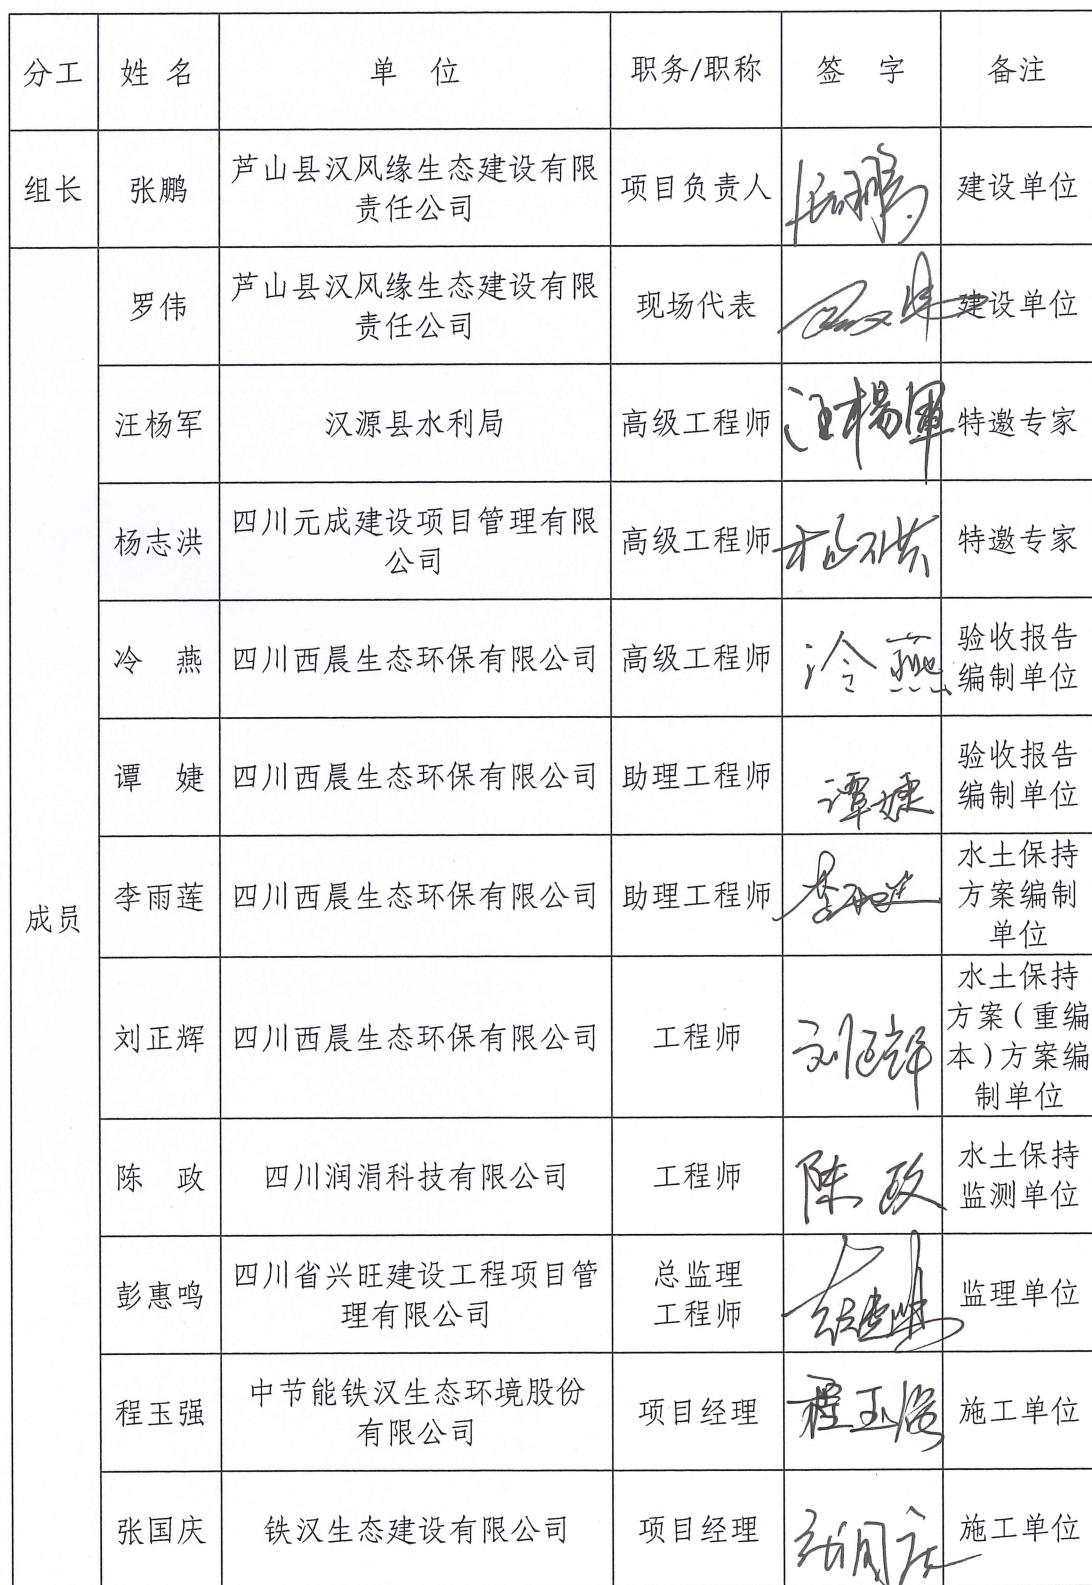 分工 姓 名 单 位 职务/职称 签 字 备注
组长 张鹏 芦山县汉风缘生态建设有限
责任公司 项目负责人 张鹏 建设单位
成员
罗伟 芦山县汉风缘生态建设有限
责任公司 现场代表 罗伟 建设单位
汪杨军 汉源县水利局 高级工程师 汪楊軍 特邀专家
杨志洪 四川元成建设项目管理有限
公司 高级工程师 杨志洪 特邀专家
冷 燕 四川西晨生态环保有限公司 高级工程师 冷燕 验收报告
编制单位
谭 婕 四川西晨生态环保有限公司 助理工程师 谭婕 验收报告
编制单位
李雨莲 四川西晨生态环保有限公司 助理工程师 李雨莲 水土保持
方案编制
单位
刘正辉 四川西晨生态环保有限公司 工程师 刘正辉 水土保持
方案（重编
本）方案编
制单位
陈 政 四川润涓科技有限公司 工程师 陈政 水土保持
监测单位
彭惠鸣 四川省兴旺建设工程项目管
理有限公司 总监理
工程师 彭惠鸣 监理单位
程玉强 中节能铁汉生态环境股份
有限公司 项目经理 程玉强 施工单位
张国庆 铁汉生态建设有限公司 项目经理 张国庆 施工单位